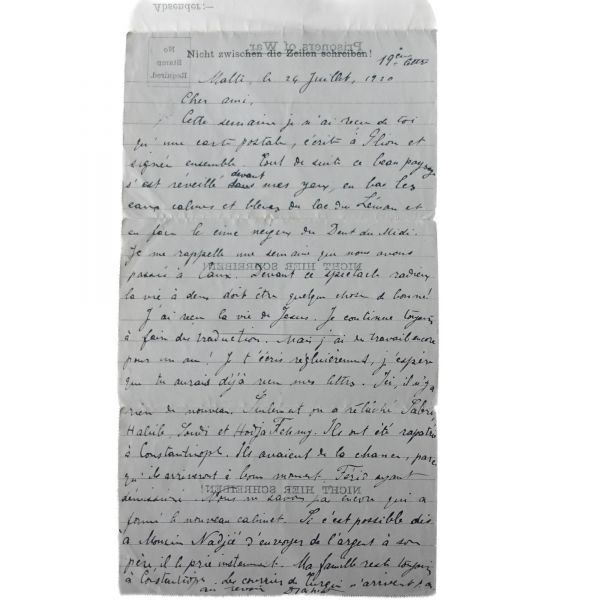 Absender:—
Prisoners of War.
No
Stamp
Required.
Nicht zwischen die Zeilen schreiben!
19ème lettre
Malte, le 24 Juillet, 1920
Cher ami,
Cette semaine je n'ai recu de toi
qu'une carte postale, écrite à Glion et
signée ensemble. Tout de suite ce beau paysage
s'est réveillé devant mes yeux, en bas les
eaux calmes et bleues du lac du Léman et
en face le cime neigeux du Dent du Midi.
Je me rappelle une semaine que nous avons
passée à Caux. Devant ce spectacle radieux
NICHT HIER SCHREIBEN!
la vie à deux doit être quelque chose de bonne!
J'ai recu la vie de Jesus. Je continue toujours
à faire des traduction. Mais j'ai du travail encore
pour un an! Je t'écris régluièrement, j'espère
que tu aurais déjà recu mes lettres. Ici, il n'y a
rien de nouveau. Seulement on a relâché Sabri
Habib, et Hodja Fehmy. Ils ont été rapatriés
à Constantinople. Ils avaient de la chance, parce
qu'ils arriveront à bon moment. Férid ayant
NICHT HIER SCHREIBEN!
démissioné. Nous ne savons pas encore qui a
formé le nouveau cabinet. Si c'est possible dis
à Moucin Nadjié d'envoyer de l'argent à son
père, il le prie instamment. Ma famille reste toujours
à Constantinople. Les courriers de Turquie n'arrivent pas
au revoir